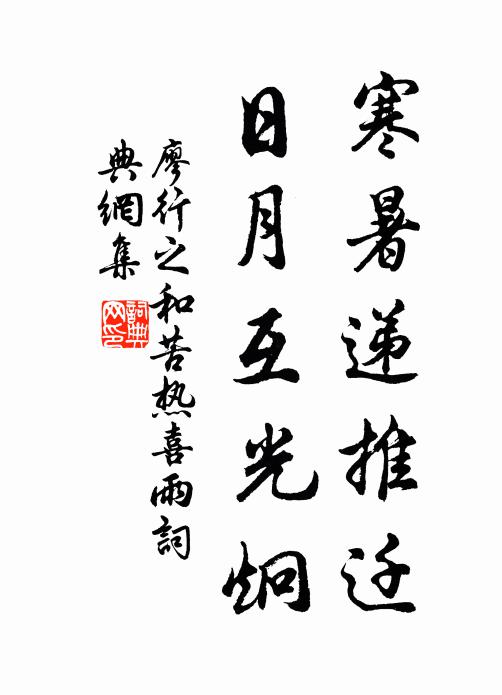 寒暑递推迁
日月互光炯
廖行之和苦热喜雨詞
典網集
詞典网印